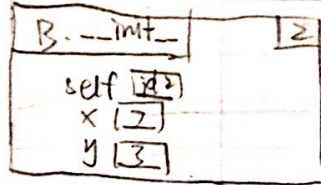 B.__init__ 2
self id2
x 2
y 3